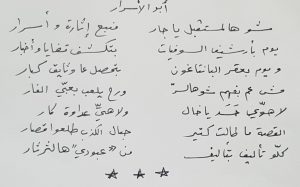 أبو الأسرار
شو هالمستقبل يا جار فنبع إثارة و أسرار
يوم بأرشيف السوفيات بتكشف قضايا وأخبار
و يوم بعقر البانتاغون بتحصل عا وثايق كبار
مش عم بفهم شو هالـ ورح يلعب بعبّي الفار
لا هويّي حَسَد يا خال ولا هيّي عداوة كار
القصة ما طالت كتير حبال الكذب طلعوا قصار
كلّو تأليف بتأليف من "عبودي" هالثرثار